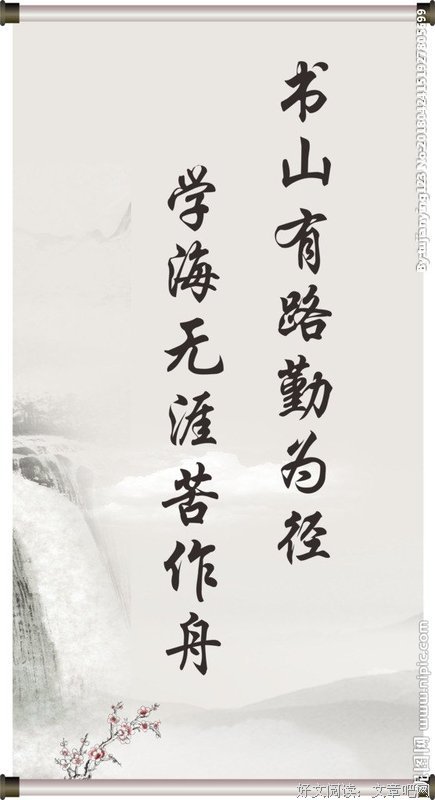 书山有路勤为径
学海无涯苦作舟
By:tujianying123 No:20180424151927805699
昵图网 www.nipic.com
好文阅读：文章吧网